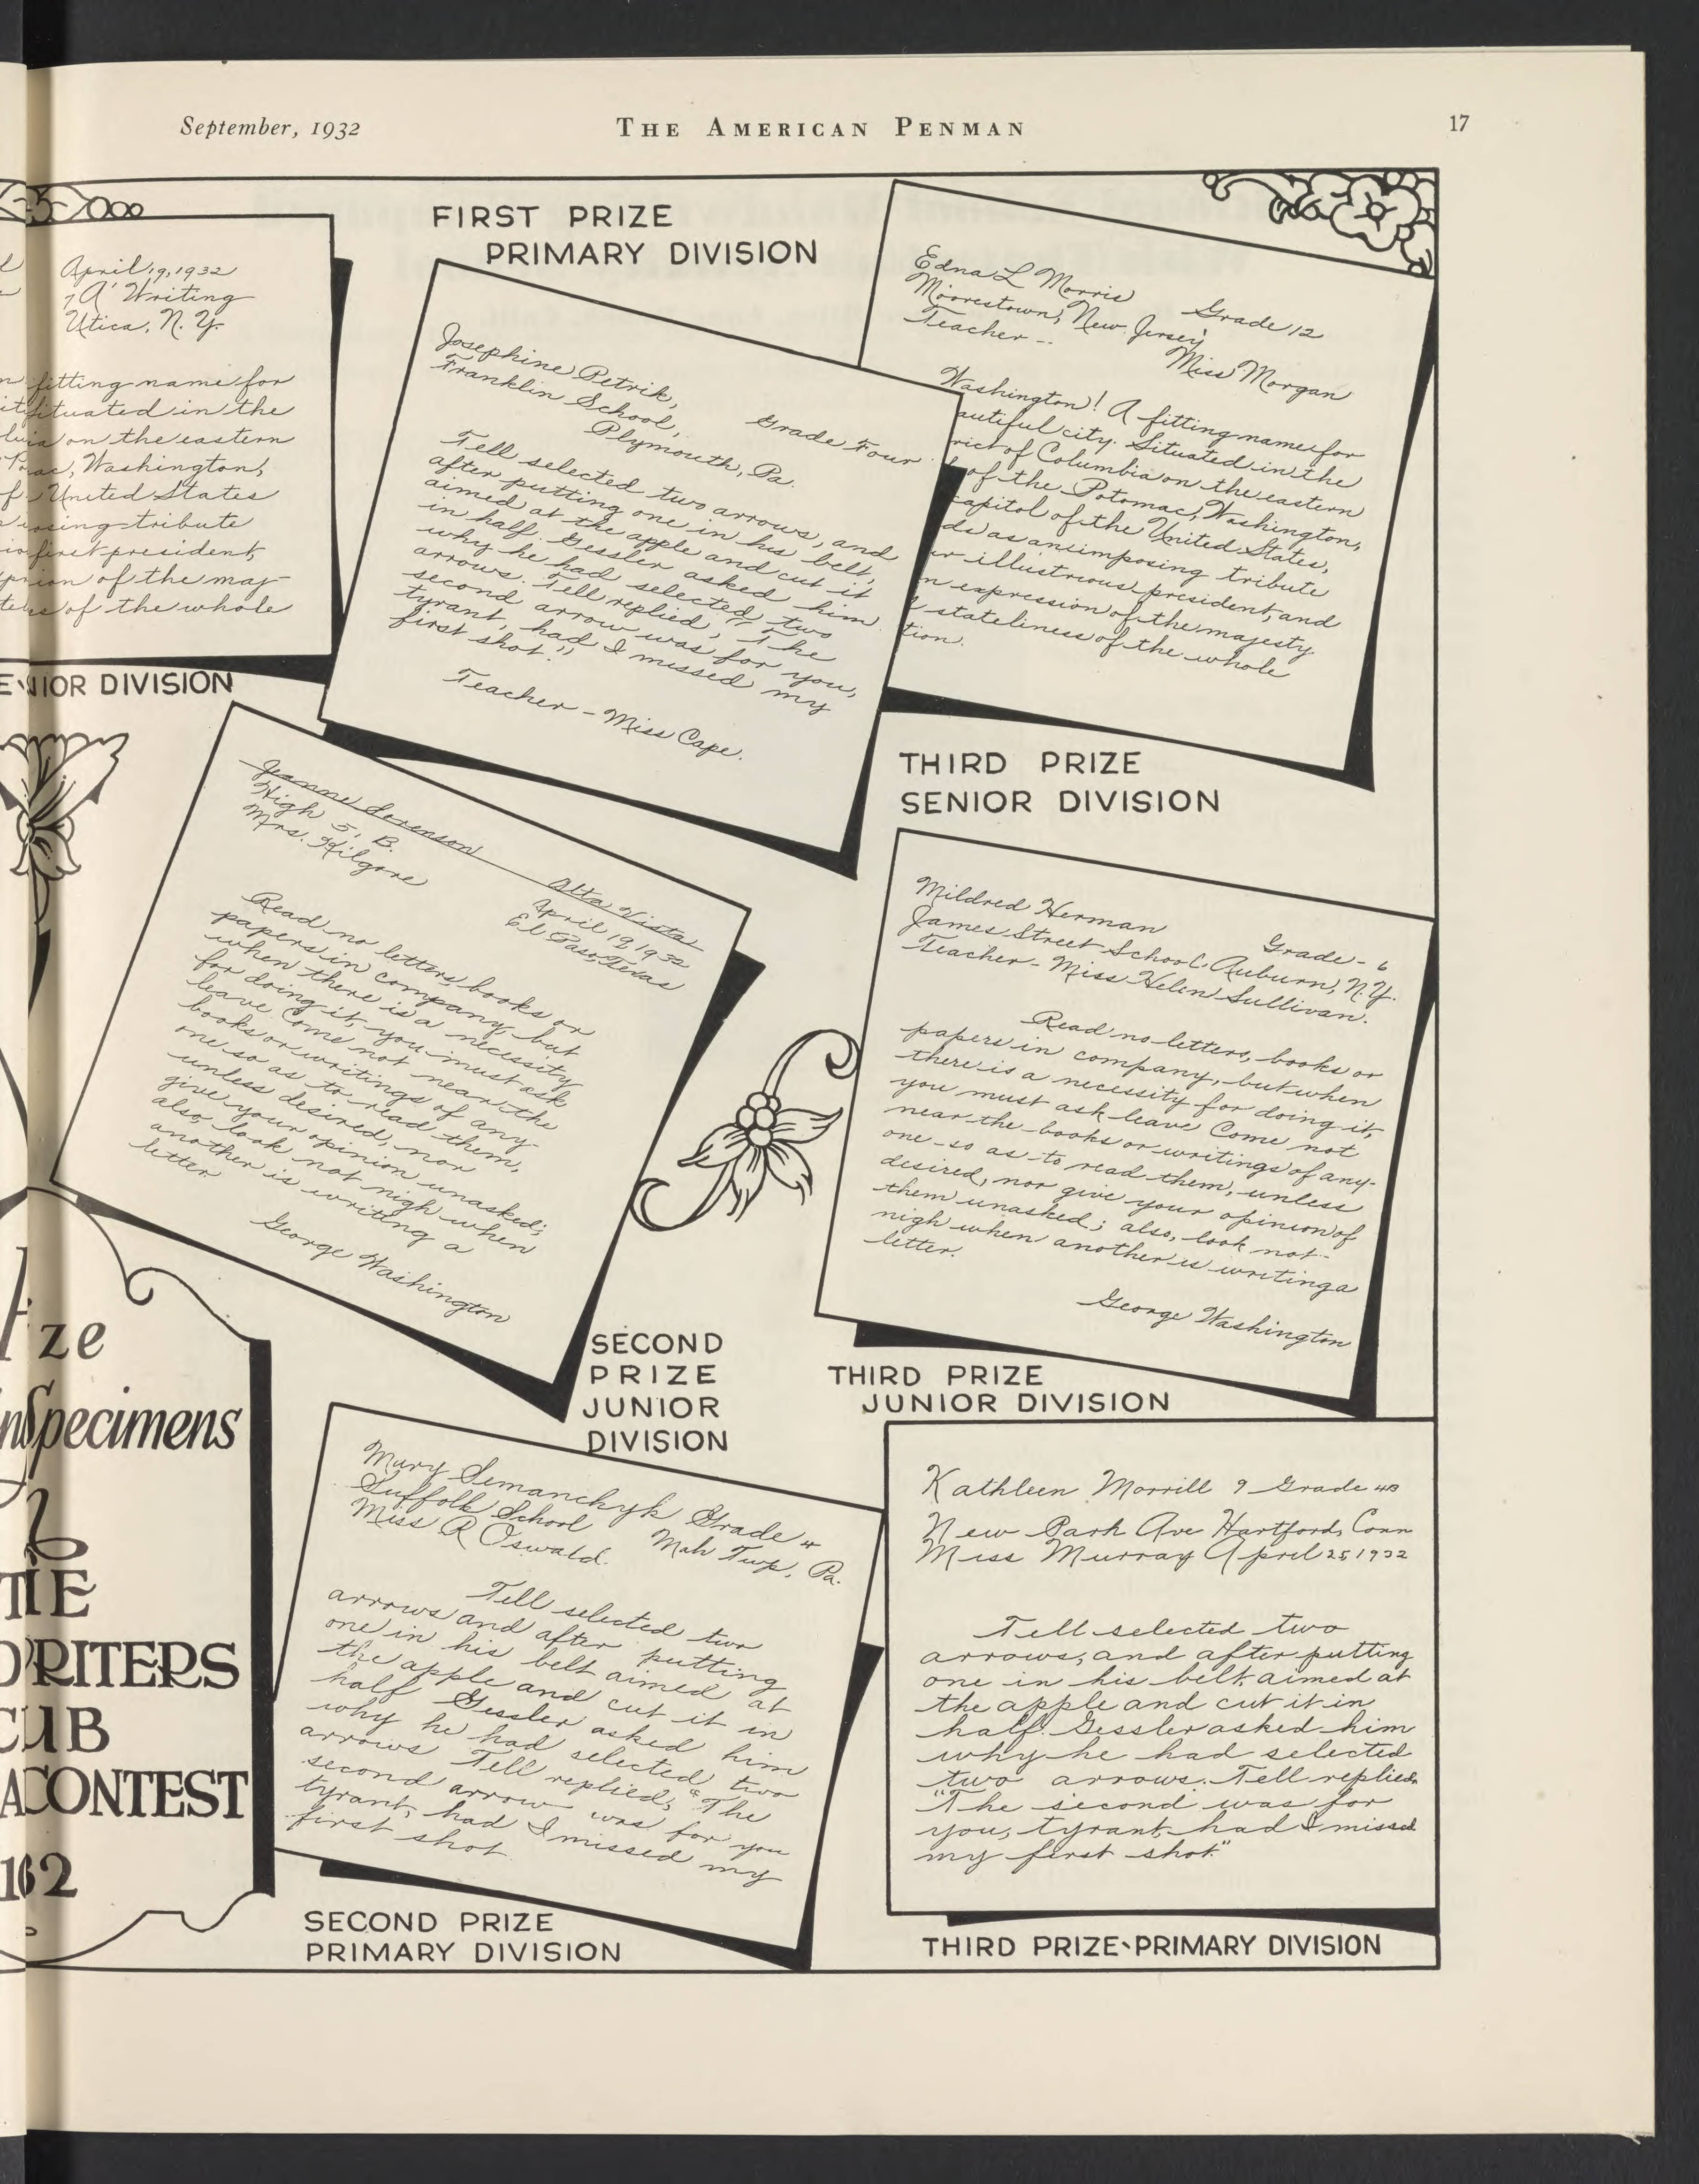 September, 1932
THE AMERICAN PENMAN
17
April 19, 1932
7A' Writing
Utica, N. Y.
fitting name for
situated in the
on the eastern
Washington,
United States
tribute
first president,
of the maj-
of the whole
SENIOR DIVISION
FIRST PRIZE
PRIMARY DIVISION
Josephine Petrik,
Franklin School,
Grade Four
Plymouth, Pa.
Tell selected two arrows, and
after putting one in his belt,
aimed at the apple and cut it
in half. Gessler asked him
why he had selected two
arrows. Tell replied, "The
second arrow was for you,
tyrant, had I missed my
first shot."
Teacher - Miss Cape.
Edna L Morris
Grade 12
Moorestown, New Jersey
Teacher --
Miss Morgan
Washington! A fitting name for
autiful city. Situated in the
rict of Columbia on the eastern
of the Potomac, Washington,
capitol of the United States,
ds as an imposing tribute
ur illustrious president, and
n expression of the majesty
stateliness of the whole
tion.
THIRD PRIZE
SENIOR DIVISION
Jeanne Sorenson
Alta Vista
High 5, B.
April 19 1932
Mrs. Kilgore
El Paso, Texas
Read no letters, books or
papers in company, but
when there is a necessity
for doing it, you must ask
leave Come not near the
books or writings of any-
one so as to read them,
unless desired, nor
give your opinion unasked;
also, look not nigh when
another is writing a
letter.
George Washington
SECOND
PRIZE
JUNIOR
DIVISION
Mildred Herman
Grade - 6
James Street School, Auburn, N.Y.
Teacher - Miss Helen Sullivan.
Read no letters, books or
papers in company, but when
there is a necessity for doing it,
you must ask leave Come not
near the books or writings of any-
one so as to read them, unless
desired, nor give your opinion of
them unasked; also, look not
nigh when another is writing a
letter.
George Washington
THIRD PRIZE
JUNIOR DIVISION
ze
Specimens
RITERS
UB
CONTEST
2
Mary Semanchyk Grade 4
Suffolk School Mah Twp, Pa.
Miss R Oswald.
Tell selected two
arrows and after putting
one in his belt aimed at
the apple and cut it in
half Gessler asked him
why he had selected two
arrows Tell replied, "The
second arrow was for you
tyrant, had I missed my
first shot.
SECOND PRIZE
PRIMARY DIVISION
Kathleen Morrill 9 Grade 4B
New Park Ave Hartford, Conn
Miss Murray April 25 1932
Tell selected two
arrows, and after putting
one in his belt, aimed at
the apple and cut it in
half. Gessler asked him
why he had selected
two arrows. Tell replied,
"The second was for
you, tyrant, had I missed
my first shot"
THIRD PRIZE-PRIMARY DIVISION